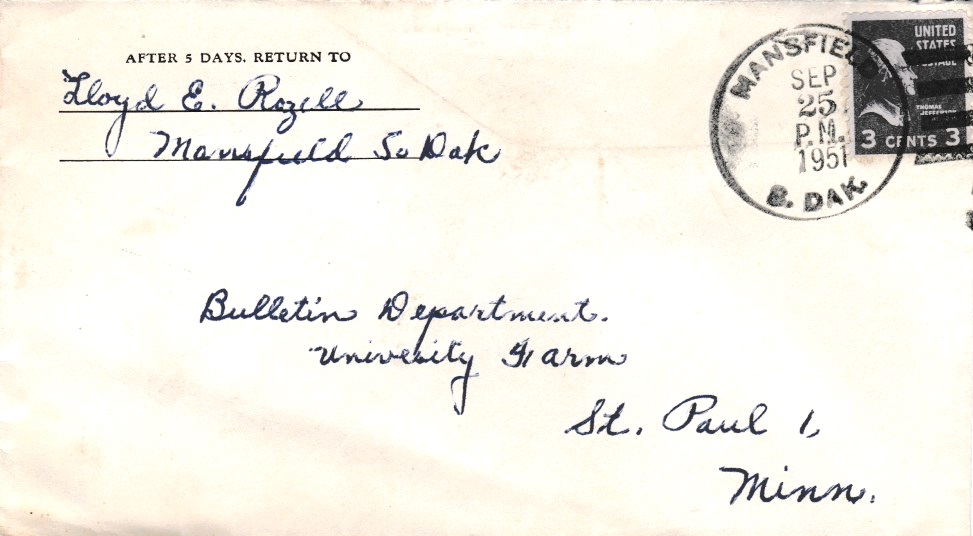 AFTER 5 DAYS, RETURN TO
Lloyd E. Rozell
Mansfield So Dak
MANSFIELD
SEP
25
P.M.
1951
S. DAK.
UNITED
STATES
POSTAGE
THOMAS
JEFFERSON
3 CENTS 3
Bulletin Department.
Univesity Farm
St. Paul 1,
Minn.